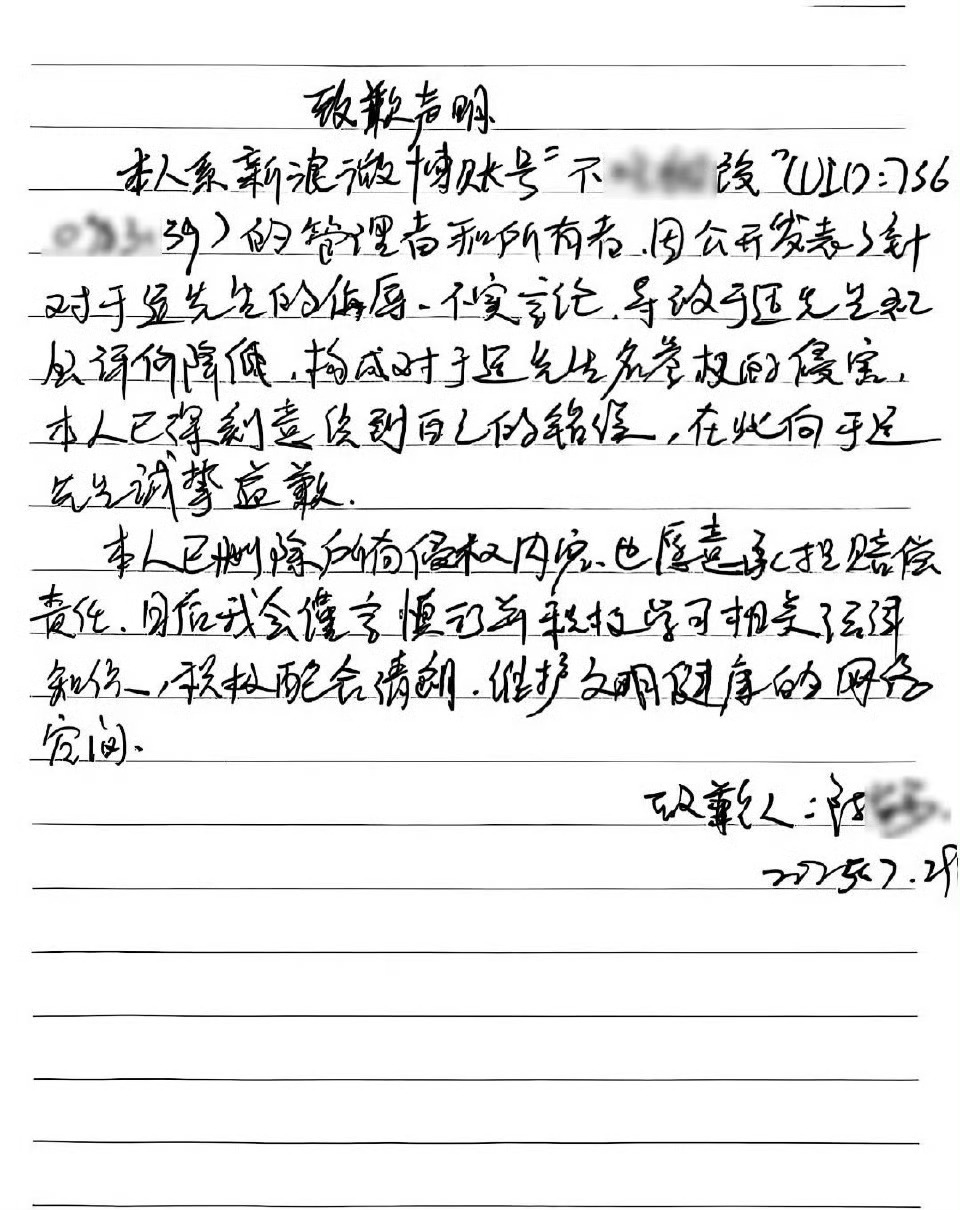 致歉声明
本人系新浪微博账号“不改”(UID:756
039)的管理者和所有者,因公开发表了针
对于适先生的侮辱、不实言论,导致于适先生社
会评价降低,构成对于适先生名誉权的侵害,
本人已深刻意识到自己的错误,在此向于适
先生诚挚道歉.
本人已删除所有侵权内容、也愿意承担赔偿
责任、日后我会谨言慎行并积极学习相关法律
知识,积极配合清朗.维护文明健康的网络
空间、
致歉人:陆
2025.7.29